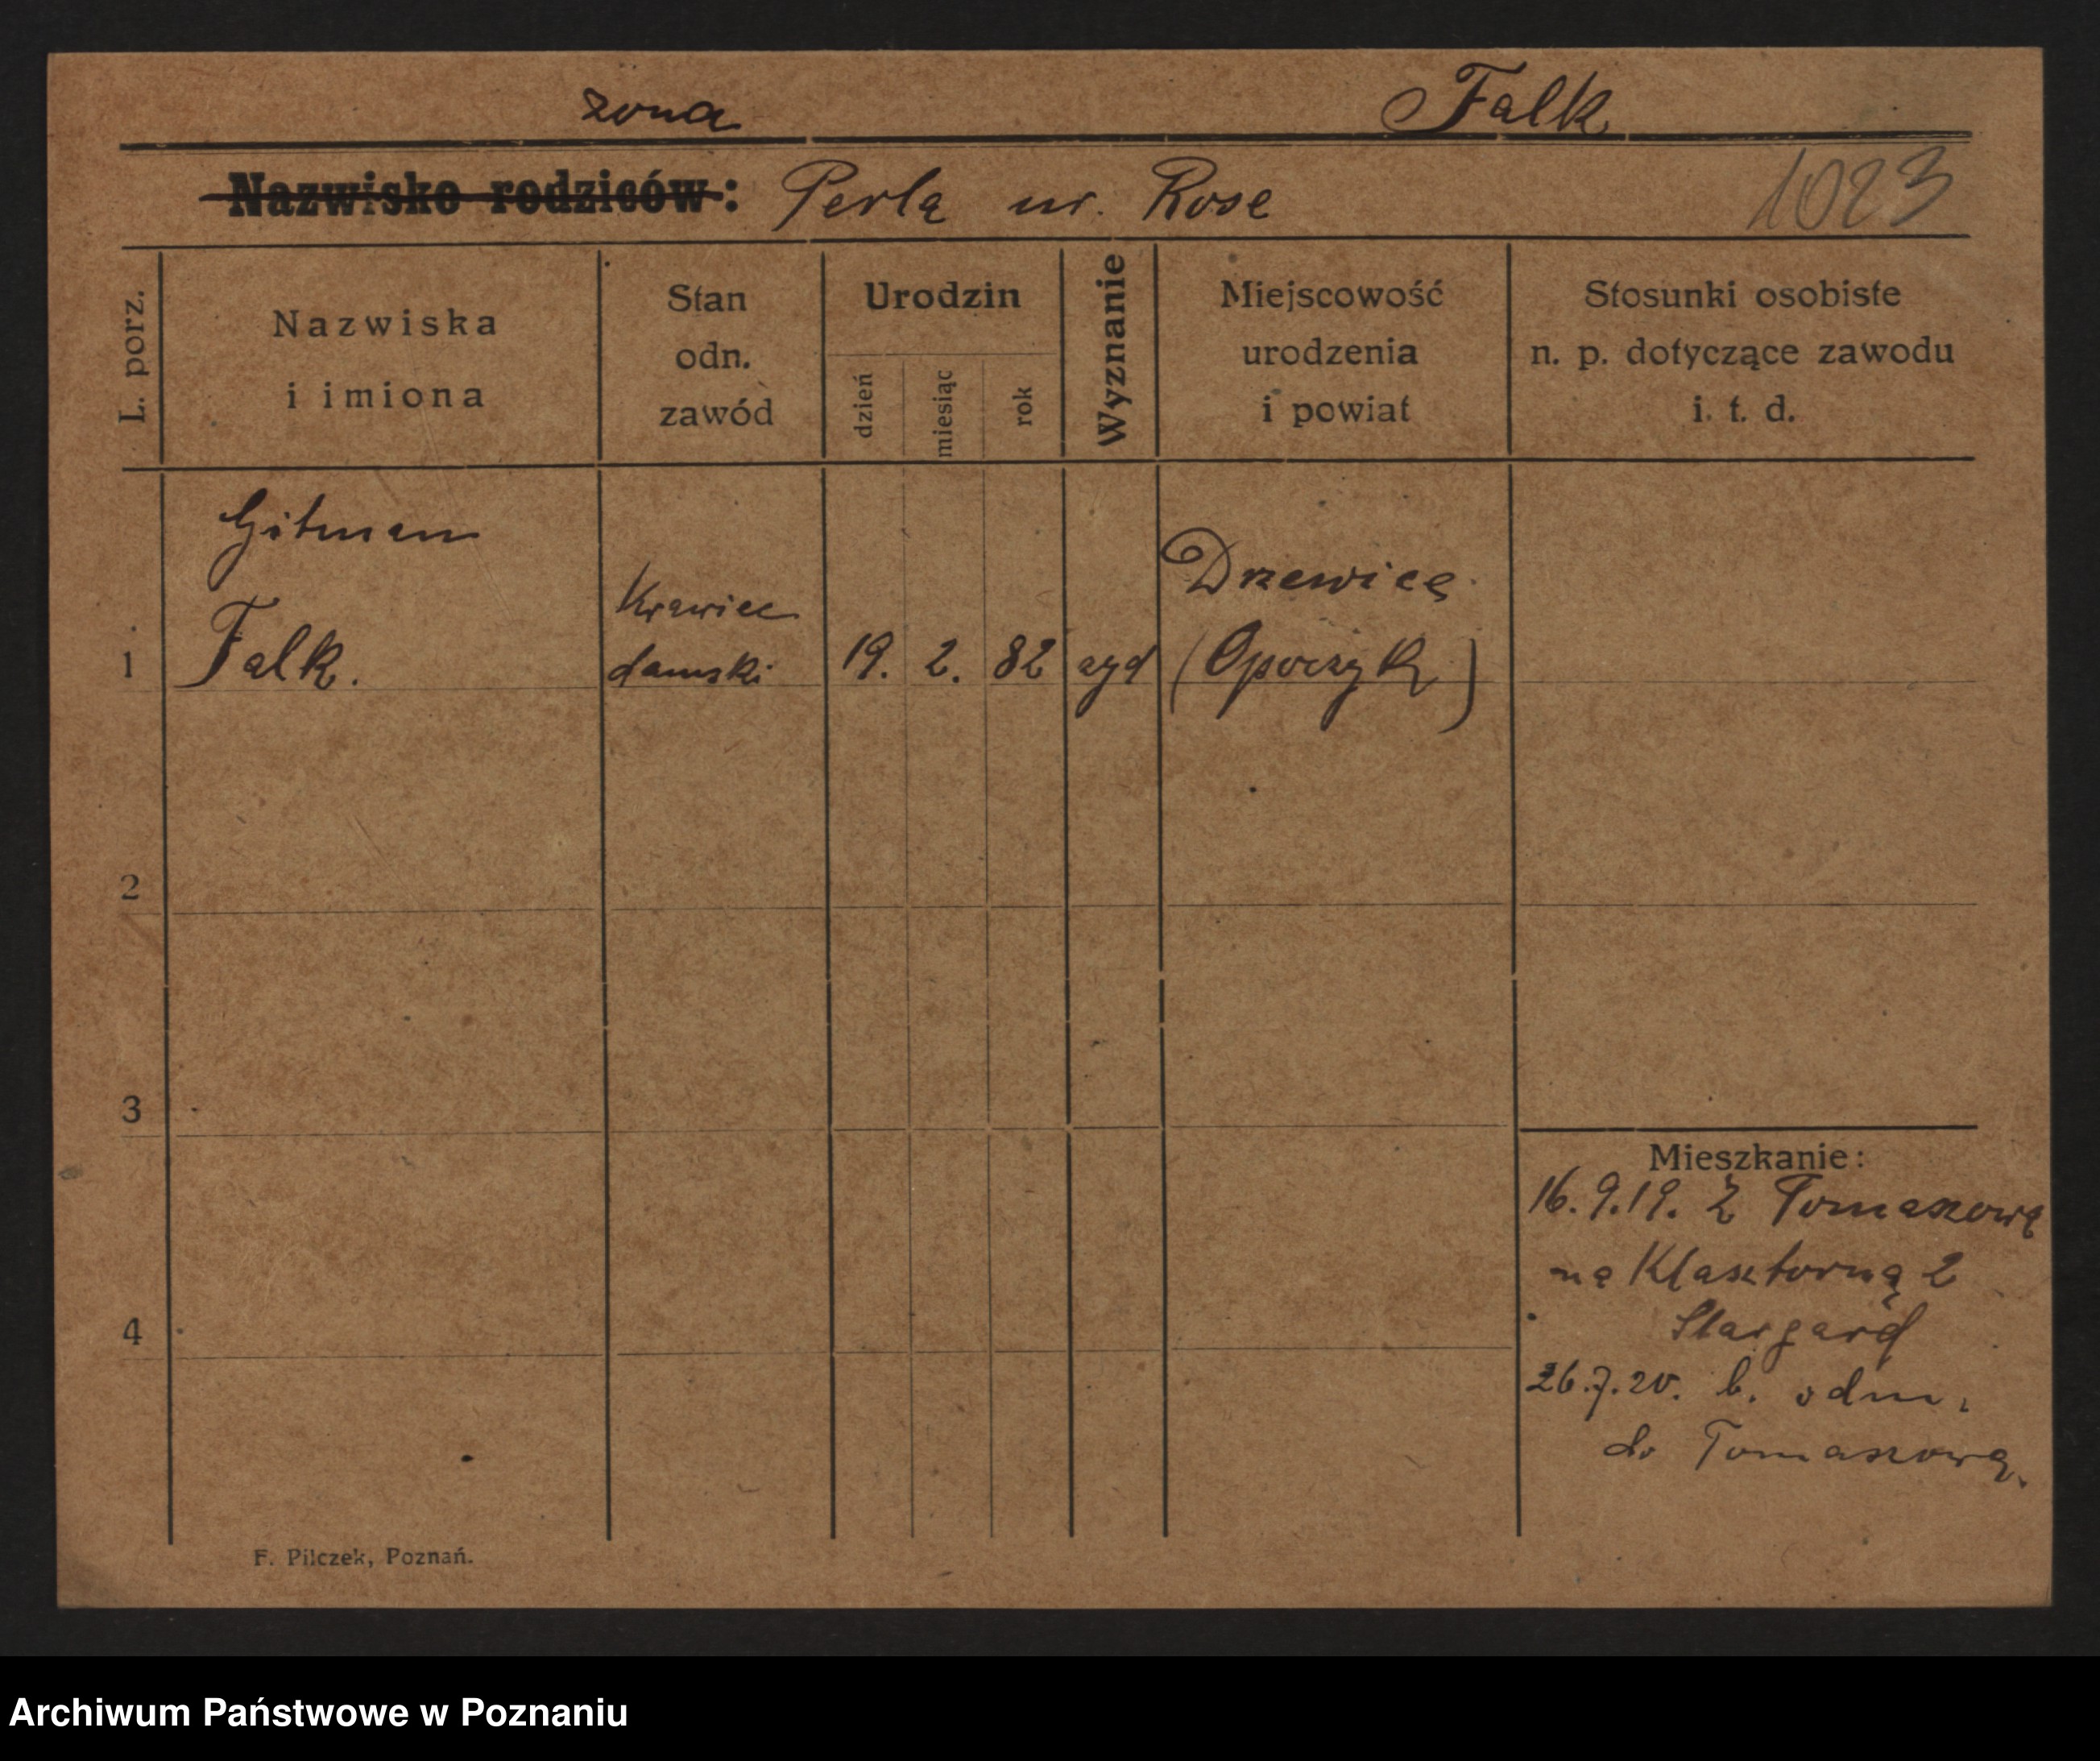 żona Falk
Nazwisko rodziców: Perla ur. Rose 1023
L. porz.
Nazwiska
i imiona
Stan
odn.
zawód
Urodzin
dzień
miesiąc
rok
Wyznanie
Miejscowość
urodzenia
i powiat
Stosunki osobiste
n. p. dotyczące zawodu
i. t. d.
Gitman
1 Falk.
Krawiec
damski
19. 2. 82
Drzewice
(Opoczyk)
2
3
4
Mieszkanie:
16.9.19. Z Tomaszowa
na Klasztorną 2
Stargard
26.7.20. b. odm.
do Tomaszowa.
F. Pilczek, Poznań.
Archiwum Państwowe w Poznaniu